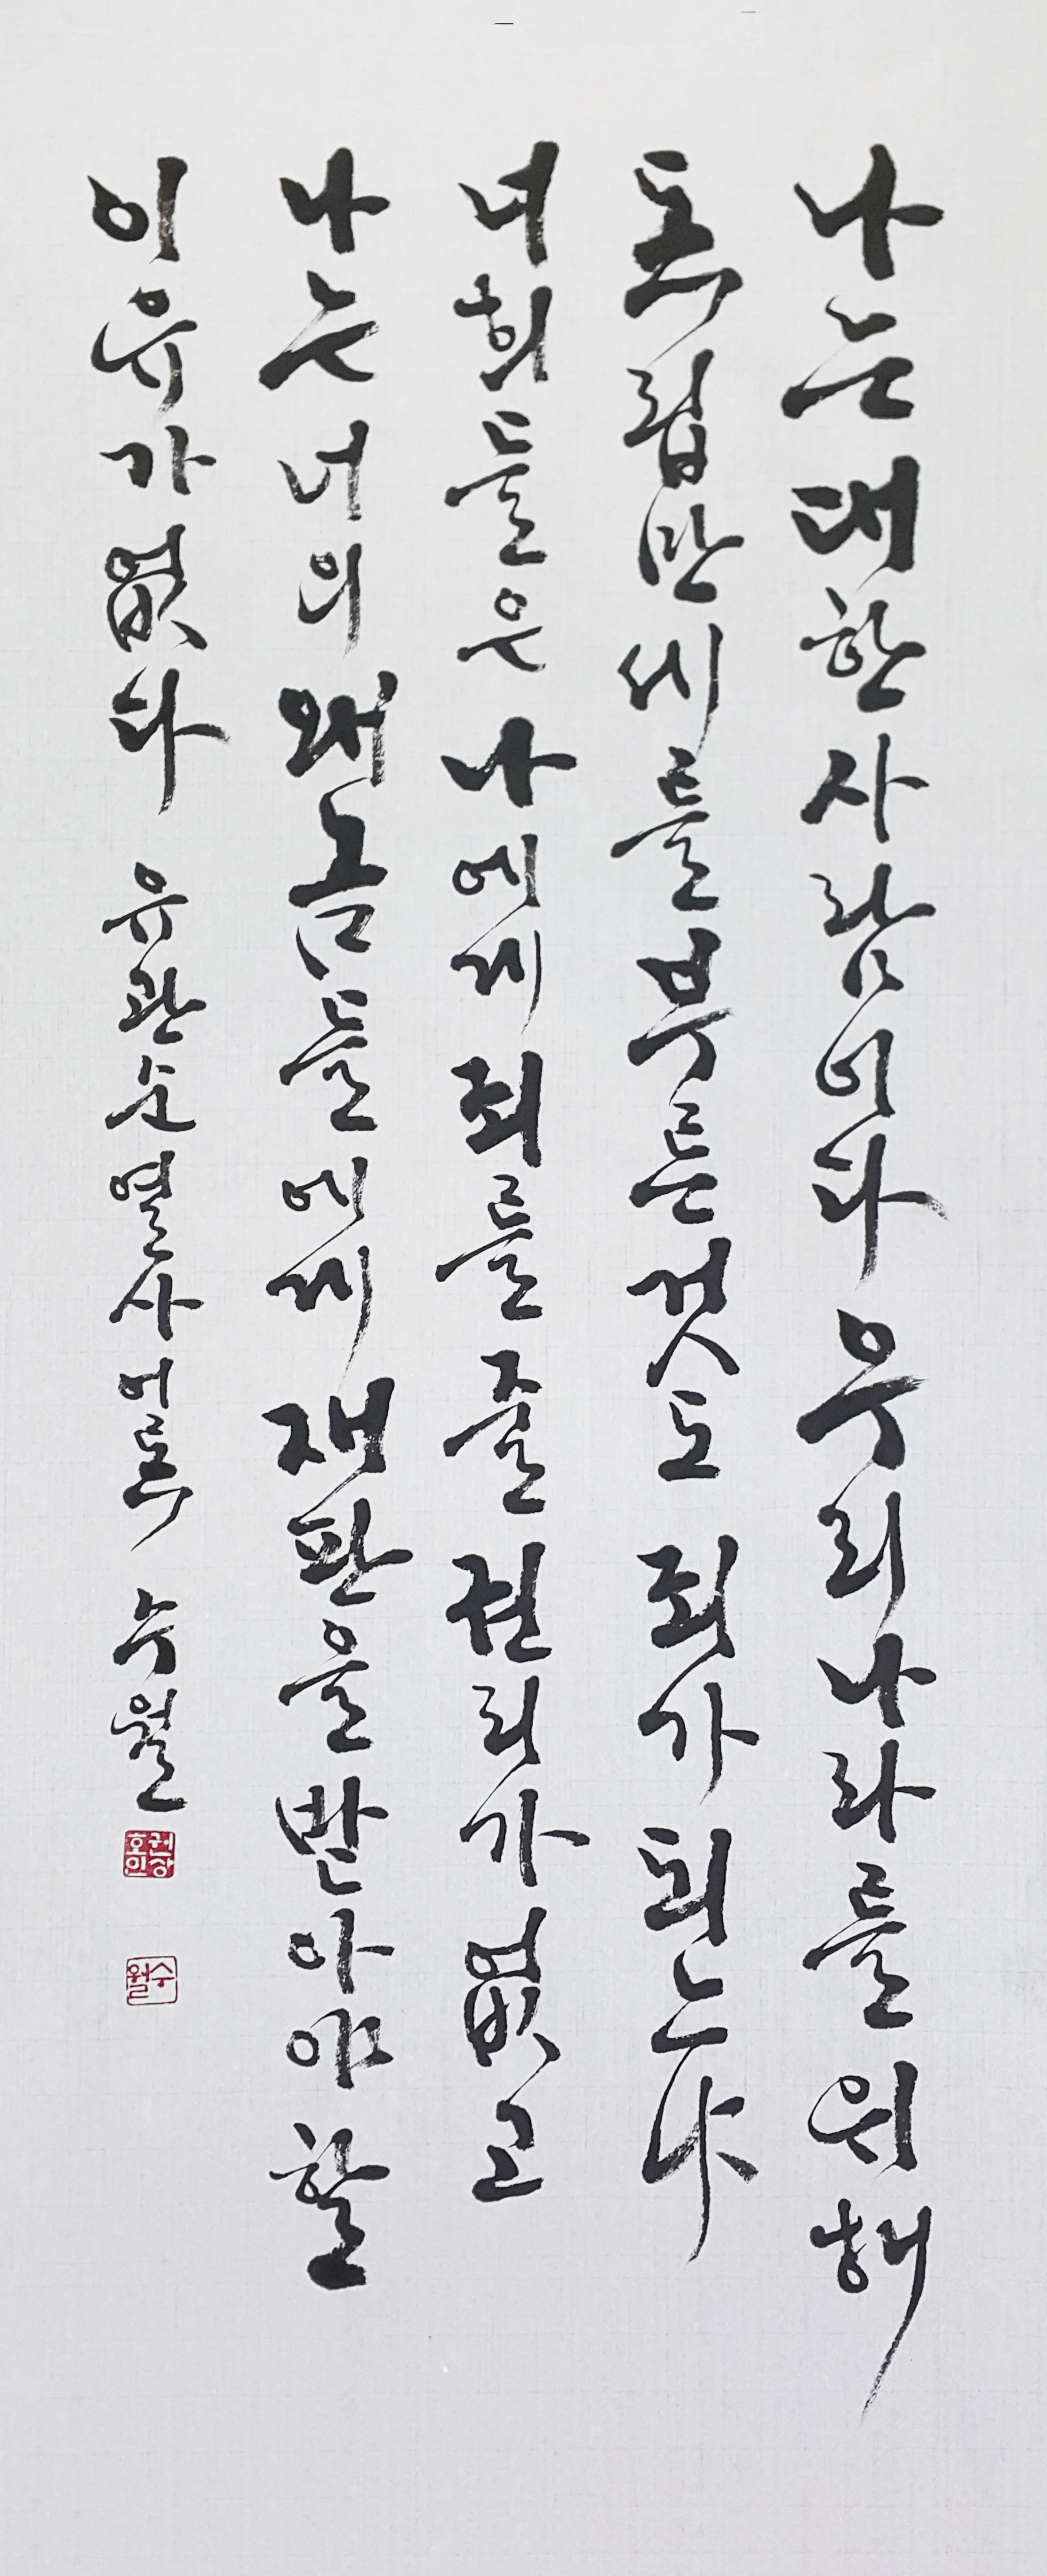 나는 대한 사람이다 우리나라를 위해
독립만세를 부른것도 죄가 되느냐
너희들은 나에게 죄를 줄 권리가 없고
나는 너의 왜놈들에게 재판을 받아야 할
이유가 없다 유관순 열사 어록 수월
권강
호인
수월